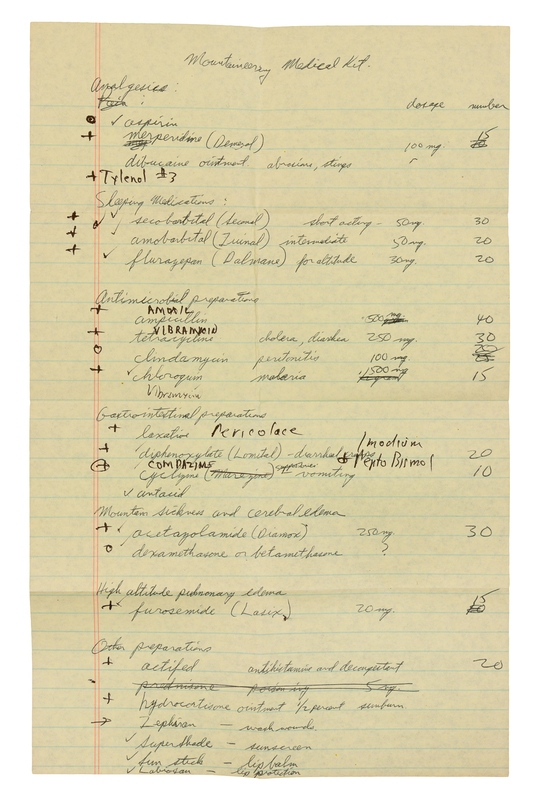 Mountaineering Medical Kit.
Analgesics:
Pain: dosage number
✓ aspirin
+ merperidine (Demerol) 100 mg. 15
dibucaine ointment abrasions, stings
+ Tylenol #3
Sleeping Medications:
+ ✓ secobarbital (Seconal) short acting - 50mg. 30
+ amobarbital (Tuinal) intermediate 50mg. 20
+ ✓ flurazepan (Dalmane) for altitude 30mg. 20
Antimicrobial preparations
AMOXIL
+ ampicillin 500 mg 40
VIBRAMYCIN
+ tetracycline cholera, diarrhea 250 mg 30
o clindamycin peritonitis 100 mg. 20
+ ✓ chloroquin malaria 1500 mg 15
Vibramycin
Gastrointestinal preparations
+ laxative Pericolace
Imodium
+ diphenoxylate (Lomotil) - diarrhea, cramps & Pepto Bismol 20
COMPAZINE
+ cyclizine (Marezine) suppositories vomiting 10
✓ antacid
Mountain sickness and cerebral edema
+ ✓ acetazolamide (Diamox) 250mg 30
o dexamethasone or betamethasone ?
High altitude pulmonary edema
+ ✓ furosemide (Lasix) 20 mg. 15
Other preparations
+ actifed antihistamine and decongestant 20
prednisone 5 mg.
+ hydrocortisone ointment 1/2 percent sunburn
→ Zephiran - wash wounds
✓ SuperShade - sunscreen
✓ sun stick - lip balm
✓ Labiosan - lip protection